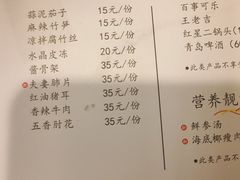 蒜泥茄子 15元/份
麻辣竹笋 15元/份
凉拌腐竹丝 15元/份
水晶皮冻 20元/份
酱骨架 35元/份
夫妻肺片 35元/份
红油猪耳 35元/份
香辣牛肉 35元/份
五香肘花 35元/份
百事可乐
王老吉
红星二锅头(1
青岛啤酒(6
此类产品不享
营养靓
鲜参汤
海底椰瘦肉